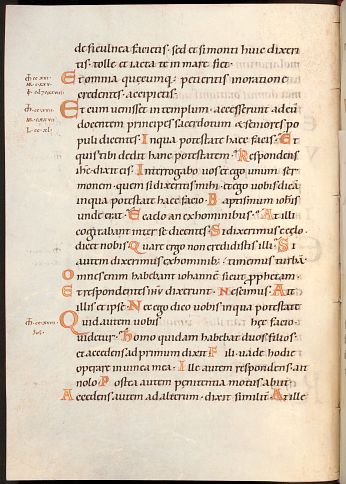 de ficulnea facietis · sed et si monti huic dixeri
tis · tolle et iacta te in mare fiet ·
Et omnia quęcumq; petieritis in oratione
credentes · accipietis ·
Et cum uenisset in templum · accesserunt ad eū
docentem principes sacerdotum & seniores po
puli dicentes · In qua potestate hęc facis · Et
quis tibi dedit hanc potestatem · Respondens
ihc̄ dixit eis · Interrogabo uos et ego unum ser
monem · quem si dixeritis mihi · et ego uobis dicā
in qua potestate hęc facio · Baptismum ioh̄is
unde erat · E cęlo an ex hominibus · At illi
cogitabant inter se dicentes · Si dixerimus e cęlo ·
dicet nobis Quare ergo non credidistis illi · Si
autem dixerimus ex hominib; · timemus turbā ·
omnes enim habebant iohannē sicut prophetam ·
Et respondentes ihū dixerunt · Nescimus · Ait
illis et ipse · Nec ego dico uobis in qua potestate
Quid autem uobis hęc facio ·
uidetur · Homo quidam habebat duos filios ·
et accedens ad primum dixit · Fili uade hodie
operare in uinea mea · Ille autem respondens · ait
nolo · Postea autem pęnitentia motus abiit ·
Accedens autem ad alterum · dixit similit̄ · At ille